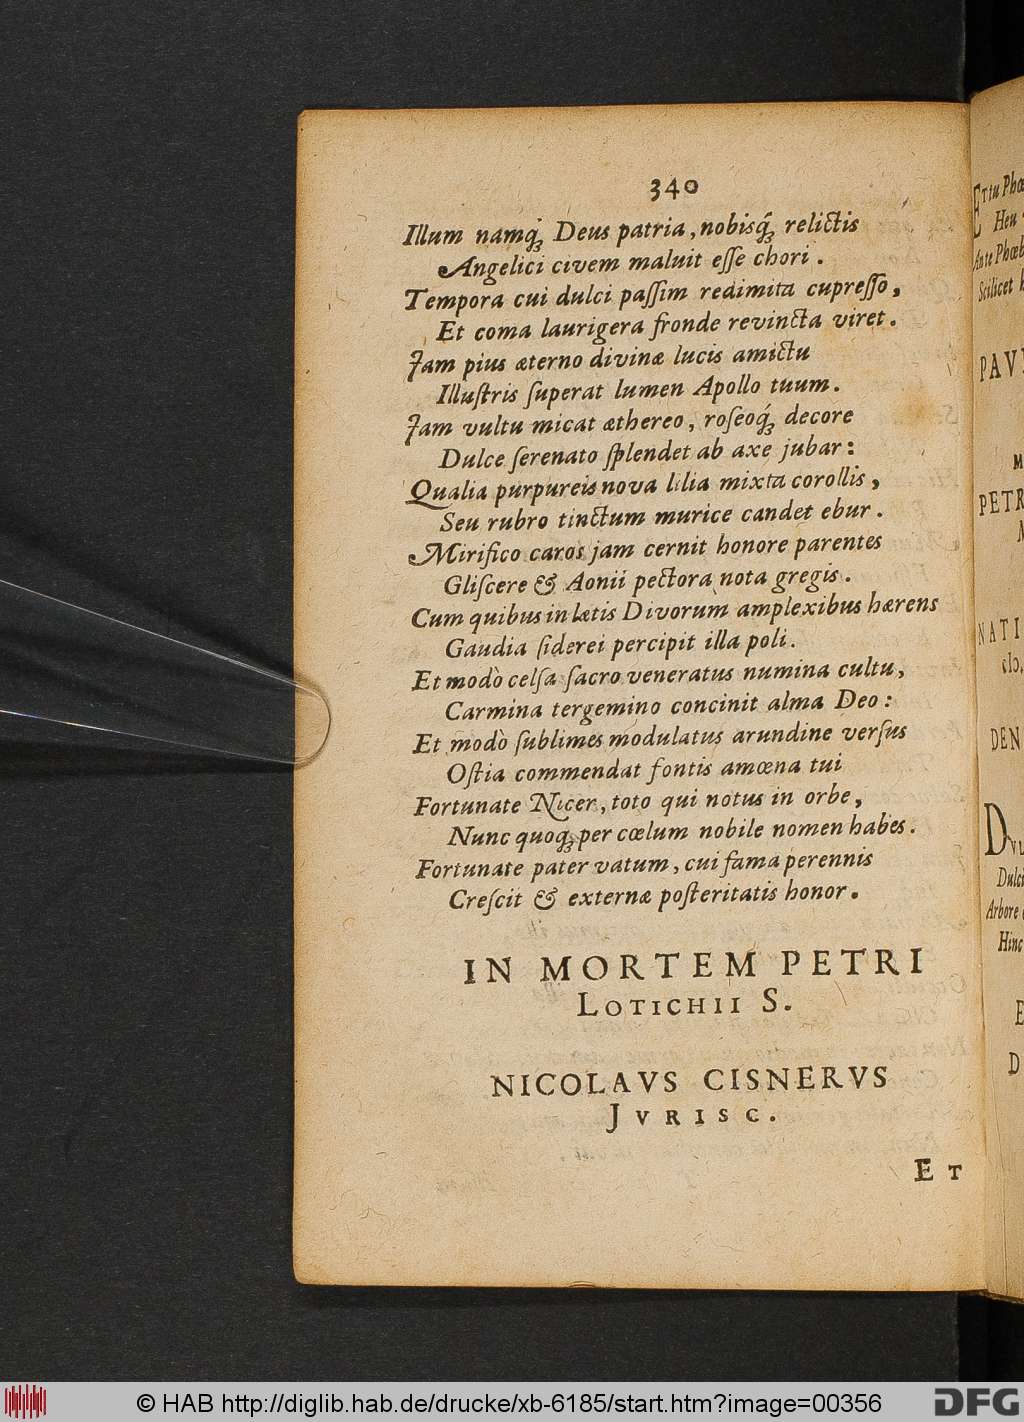 340
Illum namq́; Deus patria, nobisq́; relictis
Angelici civem maluit eſſe chori.
Tempora cui dulci paſſim redimita cupreſſo,
Et coma laurigera fronde revincta viret.
Jam pius æterno divinæ lucis amictu
Illuſtris ſuperat lumen Apollo tuum.
Jam vultu micat æthereo, roſeoq́; decore
Dulce ſerenato ſplendet ab axe jubar:
Qualia purpureis nova lilia mixta corollis,
Seu rubro tinctum murice candet ebur.
Mirifico caros jam cernit honore parentes
Gliſcere & Aonii pectora nota gregis.
Cum quibus in lætis Divorum amplexibus hærens
Gaudia ſiderei percipit illa poli.
Et modò celſa ſacro veneratus numina cultu,
Carmina tergemino concinit alma Deo:
Et modò ſublimes modulatus arundine verſus
Oſtia commendat fontis amœna tui
Fortunate Nicer, toto qui notus in orbe,
Nunc quoq; per cœlum nobile nomen habes.
Fortunate pater vatum, cui fama perennis
Creſcit & externæ poſteritatis honor.
IN MORTEM PETRI
LOTICHII S.
NICOLAVS CISNERVS
JVRISC.
ET
Et tu Phœ
Heu
Ante Phœb
Scilicet
PAV
PETR
NATI
DEN
DVL
Dulci
Arbore
Hinc
E
D
© HAB http://diglib.hab.de/drucke/xb-6185/start.htm?image=00356
DFG